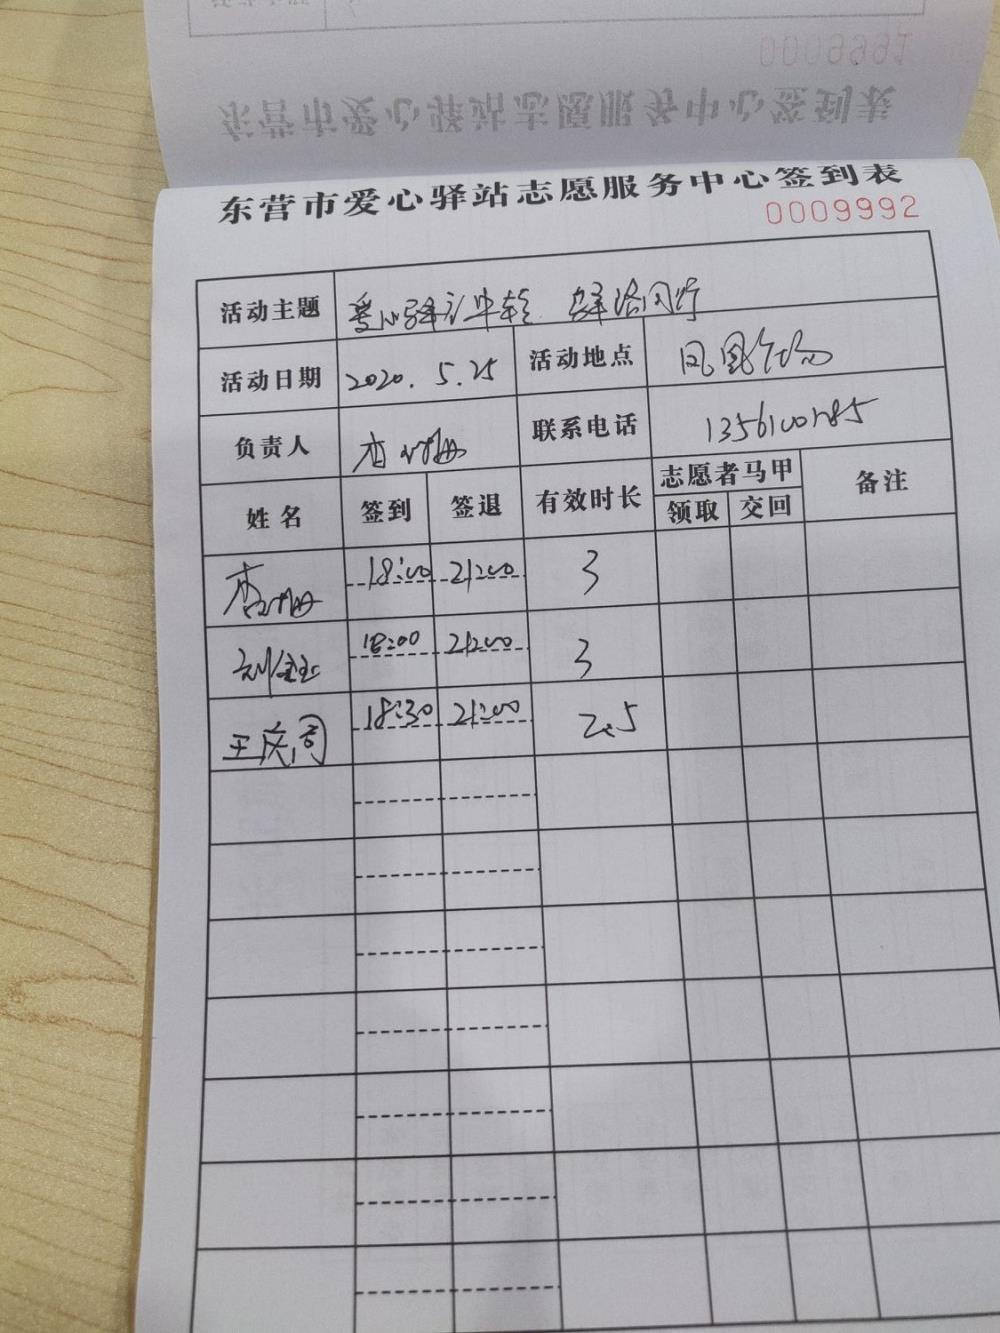 东营市爱心驿站志愿服务中心签到表
0009991
东营市爱心驿站志愿服务中心签到表
0009992
活动主题 爱心驿站
活动日期 2020.5.25 活动地点 凤凰广场
负责人 联系电话
姓名 签到 签退 有效时长 志愿者马甲 备注
领取 交回
18:00 21:00 3
刘 18:00 21:00 3
王庆 18:30 21:00 2.5